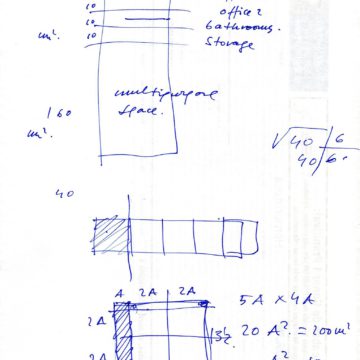 10 office 2
10 bathrooms.
m². 10 Storage
multipurpose
160 space.
m².
√40 | 6
40 | 6
40
A 2A 2A
5A x 4A
2A
20 A² = 200m²
2A